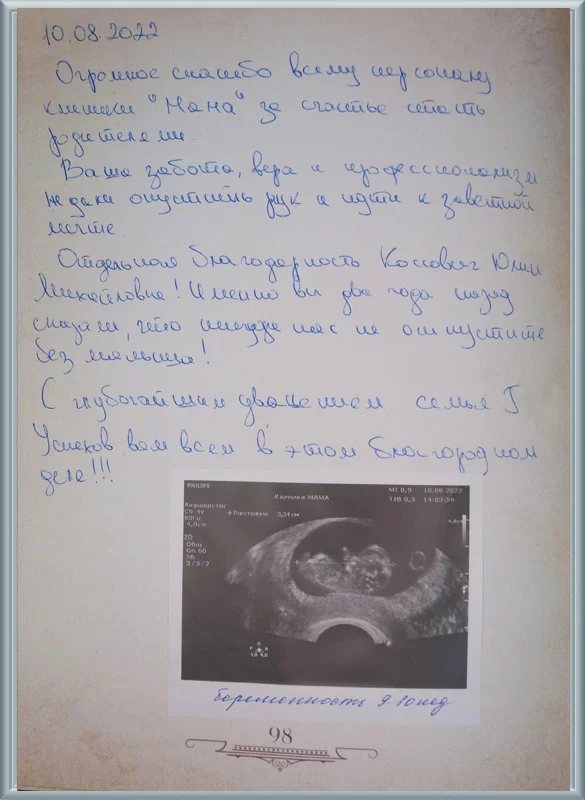 10.08.2022
Огромное спасибо всему персоналу
клиники "Мама" за счастье стать
родителями.
Ваша забота, вера и профессионализм
не дали опустить рук и идти к заветной
мечте.
Отдельная благодарность Юлии
Михайловне! Именно вы два года назад
сказали, что никуда нас не отпустите
без малыша!
С глубочайшим уважением семья Г
Успехов вам всем в этом благородном
деле!!!
PHILIPS
MI 0,9 10.08.2022
Клиника МАМА
TIB 0,3 14:03:59
Акушерство
C9-4V
+Расстояние 3,24 см
4,0cm
2D
Общ
3/3/2
беременность 9-10 нед
98